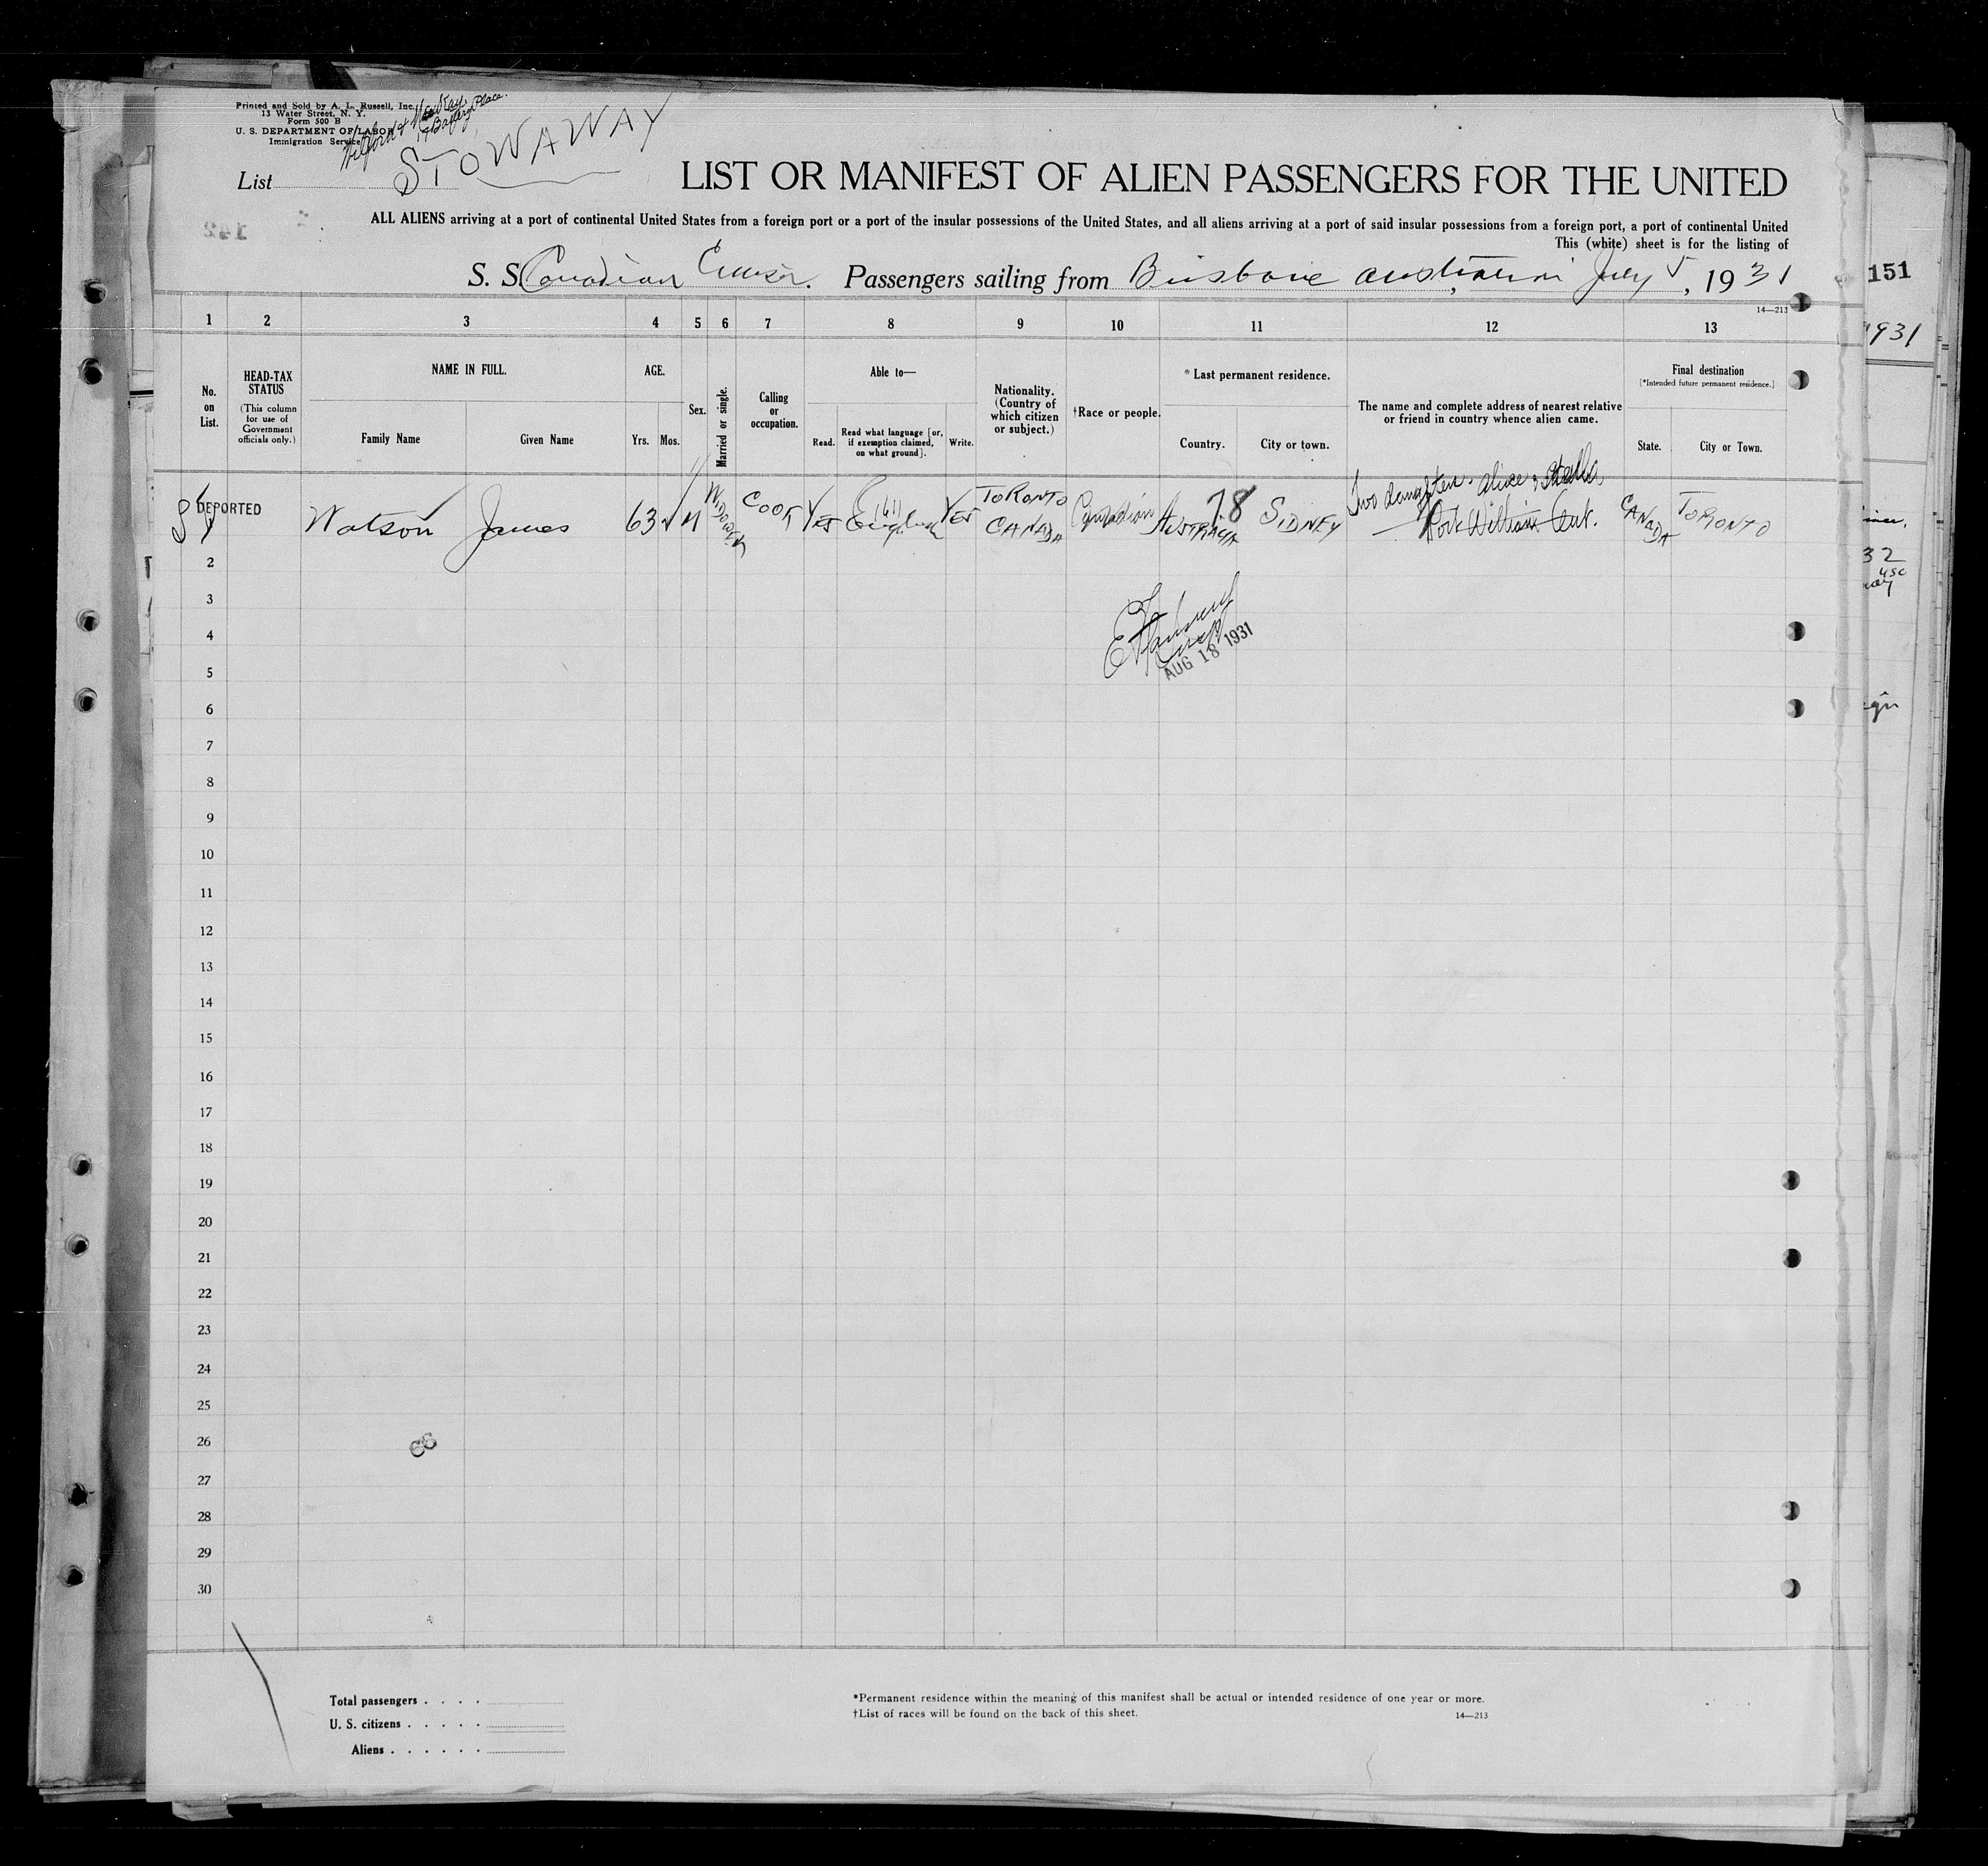 Printed and Sold by A. L. Russell, Inc.
13 Water Street, N. Y.
Form 500 B
U. S. DEPARTMENT OF LABOR
Immigration Service
17 Battery Place.
STOWAWAY
List
LIST OR MANIFEST OF ALIEN PASSENGERS FOR THE UNITED
142
ALL ALIENS arriving at a port of continental United States from a foreign port or a port of the insular possessions of the United States, and all aliens arriving at a port of said insular possessions from a foreign port, a port of continental United
This (white) sheet is for the listing of
S. S. Canadian Cruiser. Passengers sailing from Brisbane July 5, 1931
151
14—213
1 2 3 4 5 6 7 8 9 10 11 12 13
1931
No. on List.
HEAD-TAX STATUS
(This column for use of Government officials only.)
NAME IN FULL.
Family Name
Given Name
AGE.
Yrs. Mos.
Sex.
Married or single.
Calling or occupation.
Able to—
Read.
Read what language [or, if exemption claimed, on what ground].
Write.
Nationality. (Country of which citizen or subject.)
†Race or people.
* Last permanent residence.
Country.
City or town.
The name and complete address of nearest relative or friend in country whence alien came.
Final destination
[*Intended future permanent residence.]
State.
City or Town.
Two daughters. Alice & Stella
DEPORTED
Watson James 63 M WIDOWER COOK YES English YES TORONTO CANADA Canadian AUSTRALIA 78 SIDNEY Fort William Ont. CANADA TORONTO
2
32
3
4
5
AUG 18 1931
6
7
8
9
10
11
12
13
14
15
16
17
18
19
20
21
22
23
24
25
26
27
28
29
30
Total passengers . . . .
U. S. citizens . . . . .
Aliens . . . . . .
*Permanent residence within the meaning of this manifest shall be actual or intended residence of one year or more.
†List of races will be found on the back of this sheet.
14—213